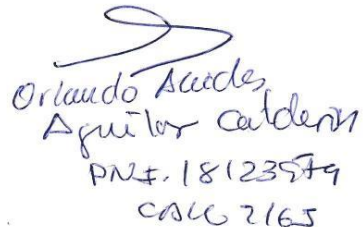 Orlando Alcides
Aguilar Calderón
DNI. 18123579
CALL 2165